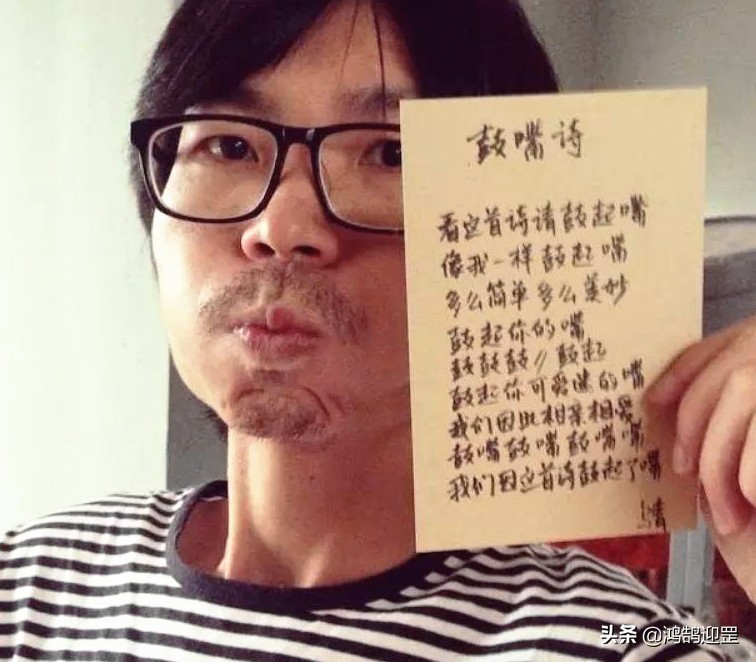 鼓嘴诗
看这首诗请鼓起嘴
像我一样鼓起嘴
多么简单多么美妙
鼓起你的嘴
鼓鼓鼓//鼓起
鼓起你可爱迷的嘴
我们因此相亲相爱
鼓嘴鼓嘴鼓嘴嘴
我们因这首诗鼓起了嘴
头条 @鸿鹄迎罡